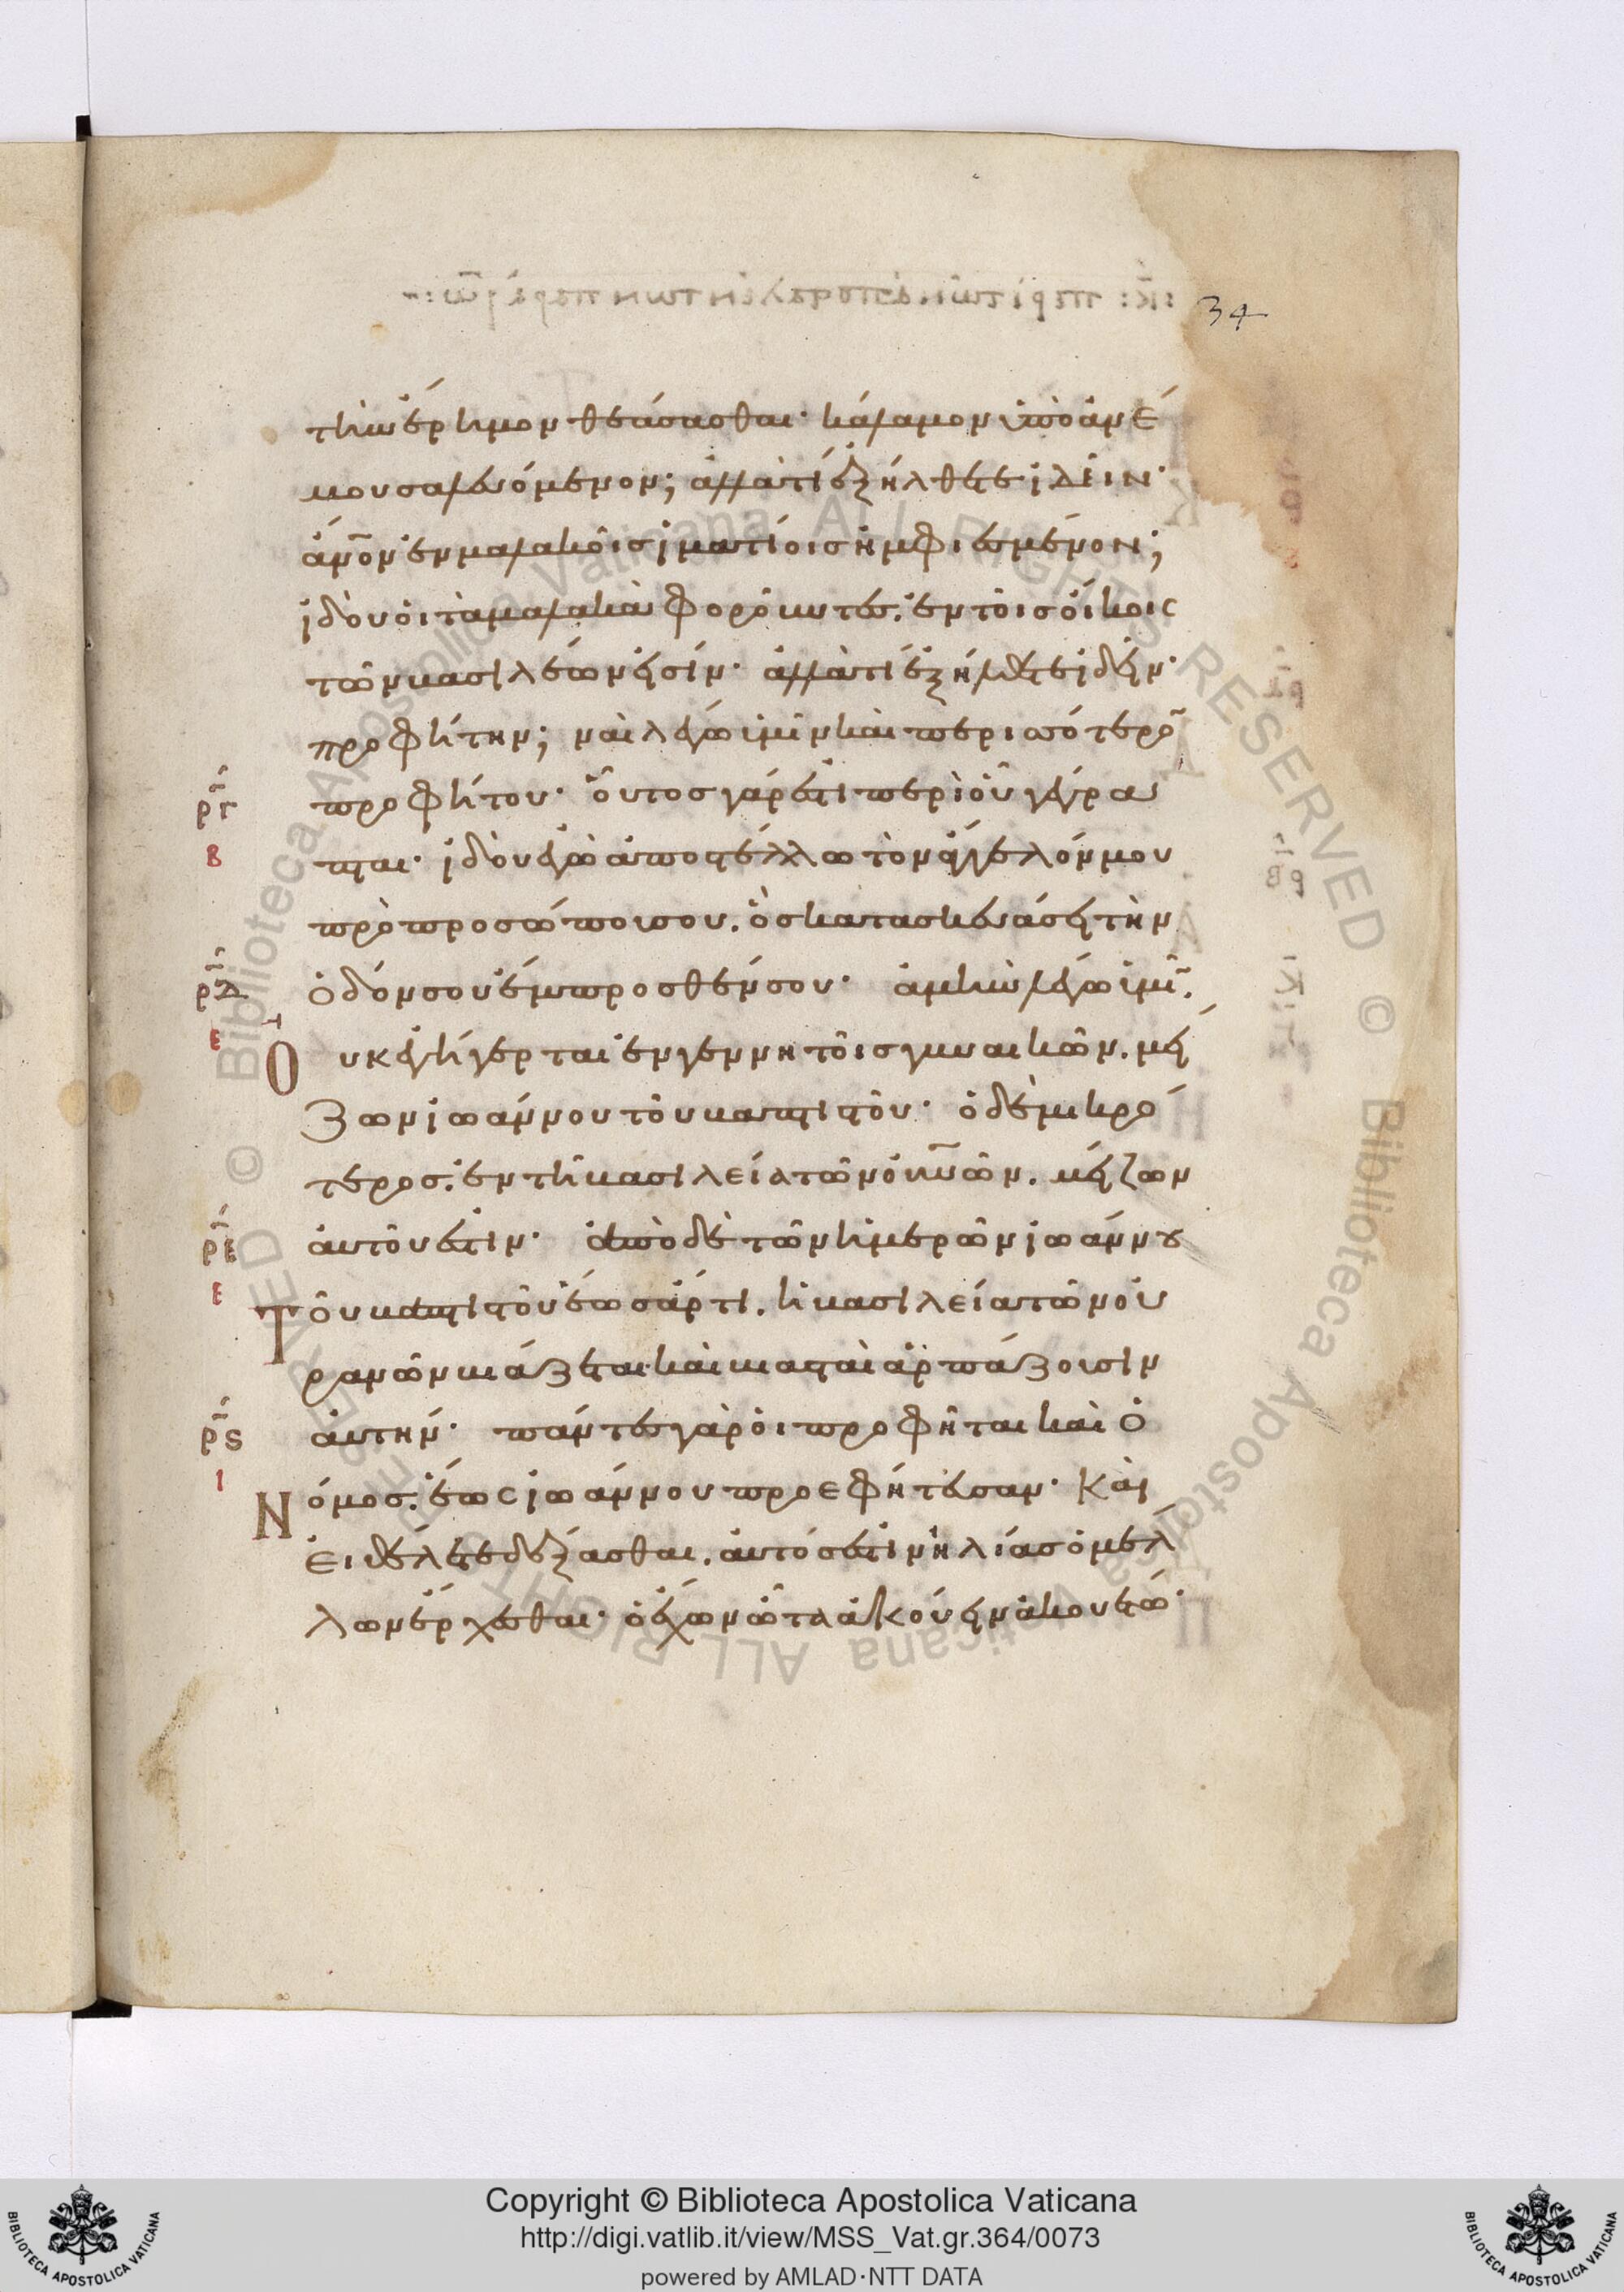 34
τὴν ἔρημον θεάσασθαι· κάλαμον ὑπὸ ἀνέ
μου σαλευόμενον; ἀλλὰ τί ἐξήλθετε ἰδεῖν·
ἄνον ἐν μαλακοῖς ἱματίοις ἠμφιεσμένον;
ἰδοὺ οἱ τὰ μαλακὰ φοροῦντες. ἐν τοῖς οἴκοις
τῶν βασιλέων εἰσίν· ἀλλὰ τί ἐξήλθετε ἰδεῖν·
προφήτην; ναὶ λέγω ὑμῖν καὶ περισσότερο
ργ
προφήτου· οὗτος γάρ ἐστι περὶ οὗ γέγρα
β
πται· ἰδοὺ ἐγὼ ἀποστέλλω τὸν ἄγγελόν μου
πρὸ προσώπου σου. ὃς κατασκευάσει τὴν
ρδ
ὁδόν σου ἔμπροσθέν σου· ἀμὴν λέγω ὑμῖ.
ε
Οὐκ ἐγήγερται ἐν γεννητοῖς γυναικῶν. μεί
ζων ἰωάννου τοῦ βαπτιστοῦ· ὁ δὲ μικρό
τερος. ἐν τῆ βασιλεία τῶν οὐνῶν. μείζων
ρε
αὐτοῦ ἐστιν· ἀπὸ δὲ τῶν ἡμερῶν ἰωάννου
ε
Τοῦ βαπτιστοῦ ἕως ἄρτι. ἡ βασιλεία τῶν οὐ
ρανῶν βιάζεται· καὶ βιασταὶ ἁρπάζουσιν
ρς
αὐτήν· πάντες γὰρ οἱ προφῆται καὶ ὁ
ι
Νόμος. ἕως ἰωάννου προεφήτευσαν· Καὶ
εἰ θέλετε δέξασθαι. αὐτός ἐστιν ἠλίας ὁ μέλ
λων ἔρχεσθαι· ὁ ἔχων ὦτα ἀκούειν ἀκουέτω·
Copyright © Biblioteca Apostolica Vaticana
http://digi.vatlib.it/view/MSS_Vat.gr.364/0073
powered by AMLAD·NTT DATA
BIBLIOTECA APOSTOLICA VATICANA
BIBLIOTECA APOSTOLICA VATICANA